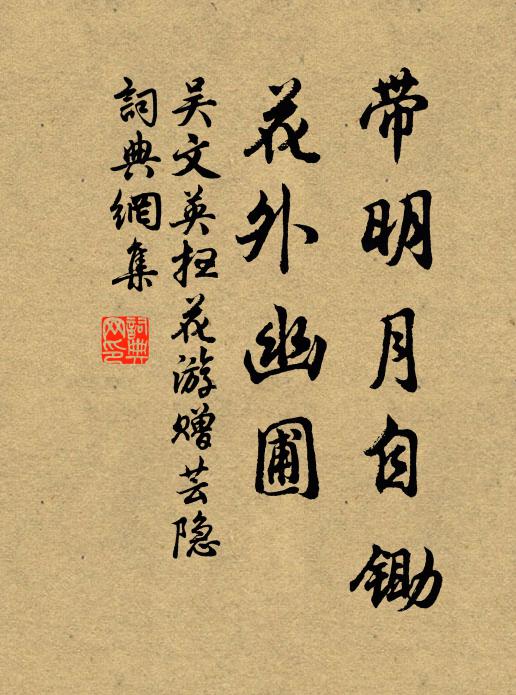 带明月自锄
花外幽圃
吴文英扫花游赠芸隐
詞典網集
詞典网印